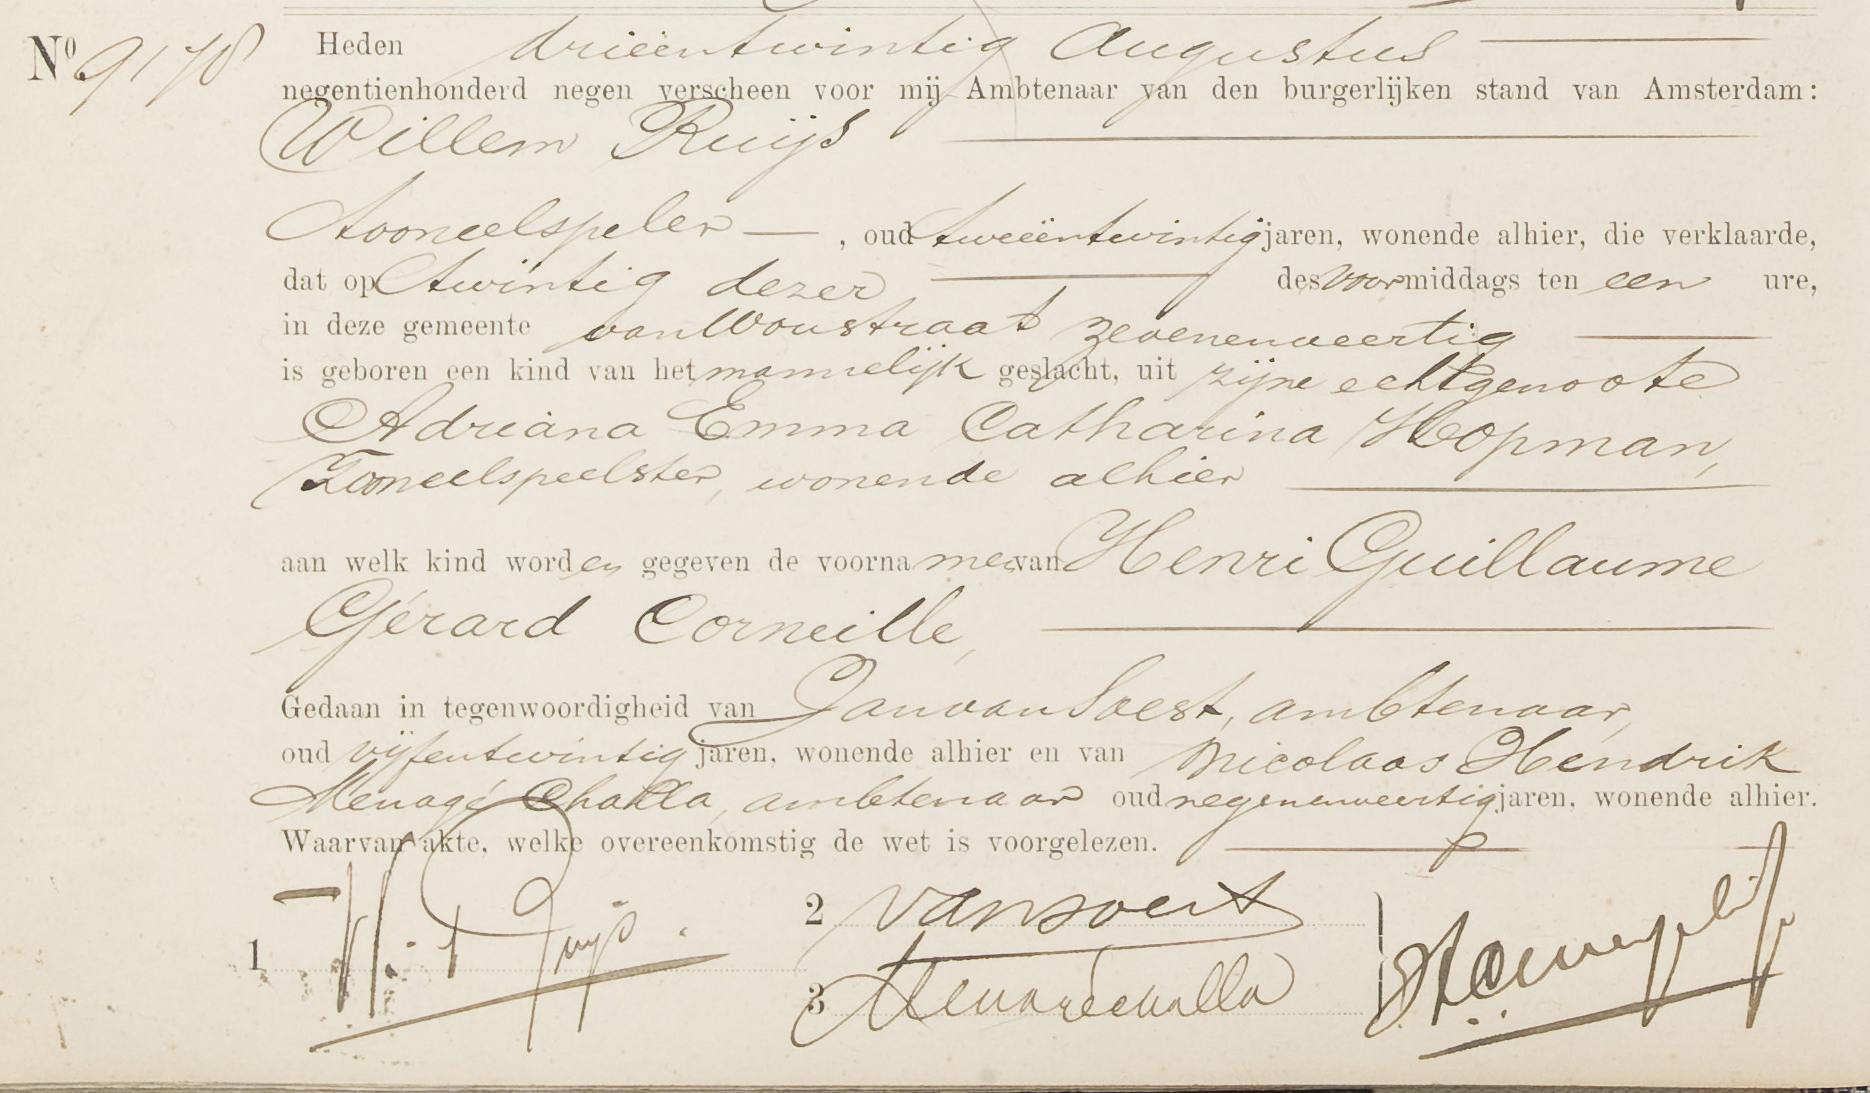 Nº 9178 Heden drieëntwintig Augustus
negentienhonderd negen verscheen voor mij Ambtenaar van den burgerlijken stand van Amsterdam:
Willem Ruijs
tooneelspeler, oud tweeëntwintig jaren, wonende alhier, die verklaarde,
dat op twintig dezer des voormiddags ten een ure,
in deze gemeente van Woustraat zevenenveertig
is geboren een kind van het mannelijk geslacht, uit zijne echtgenoote
Adriana Emma Catharina Hopman,
Tooneelspeelster, wonende alhier
aan welk kind worden gegeven de voornamen van Henri Guillaume
Gérard Corneille,
Gedaan in tegenwoordigheid van Jan van Soest, ambtenaar,
oud vijfentwintig jaren, wonende alhier en van Nicolaas Hendrik
Menagé Challa, ambtenaar oud negenenveertig jaren, wonende alhier.
Waarvan akte, welke overeenkomstig de wet is voorgelezen.
1 Ruijs.
2 van Soest
3 Menagé Challa